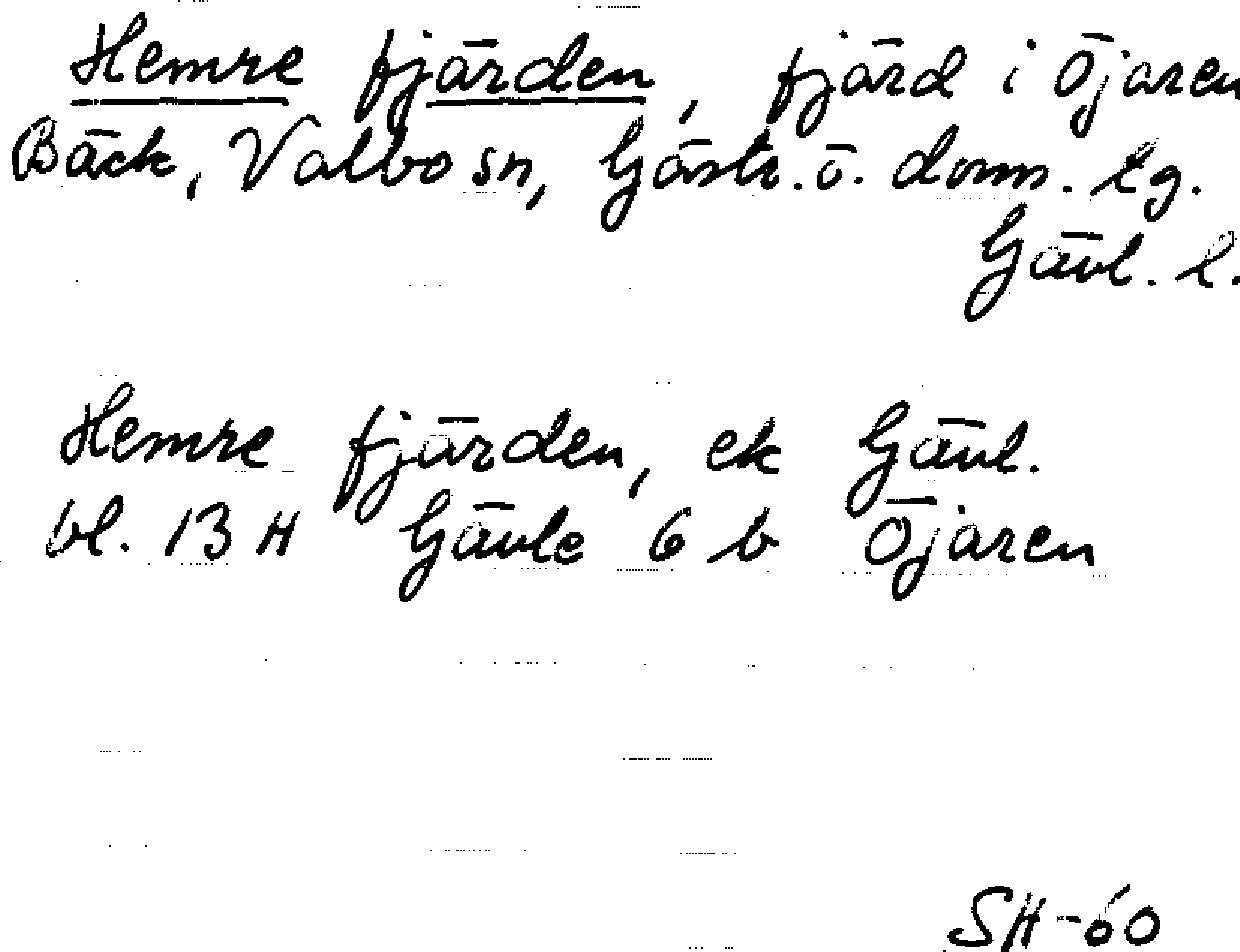 Hemre fjärden, fjärd i Öjaren
Bäck, Valbo sn, Gästr. ö. doms. lg.
Gävl. l.
Hemre fjärden, ek Gävl.
bl. 13 H Gävle 6 b Öjaren
SH-60